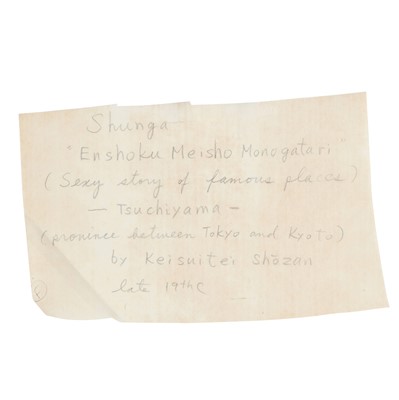 Shunga
"Enshoku Meisho Monogatari"
(Sexy story of famous places)
— Tsuchiyama —
(province between Tokyo and Kyoto)
by Keisuitei Shōzan
late 19th C